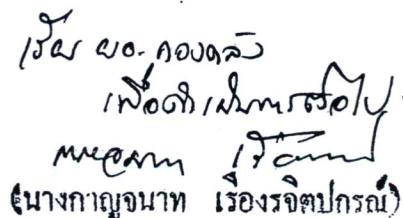 เรียน ผอ. กองคลัง
เพื่อดำเนินการต่อไป
(นางกาญจนาท เรืองรจิตปกรณ์)